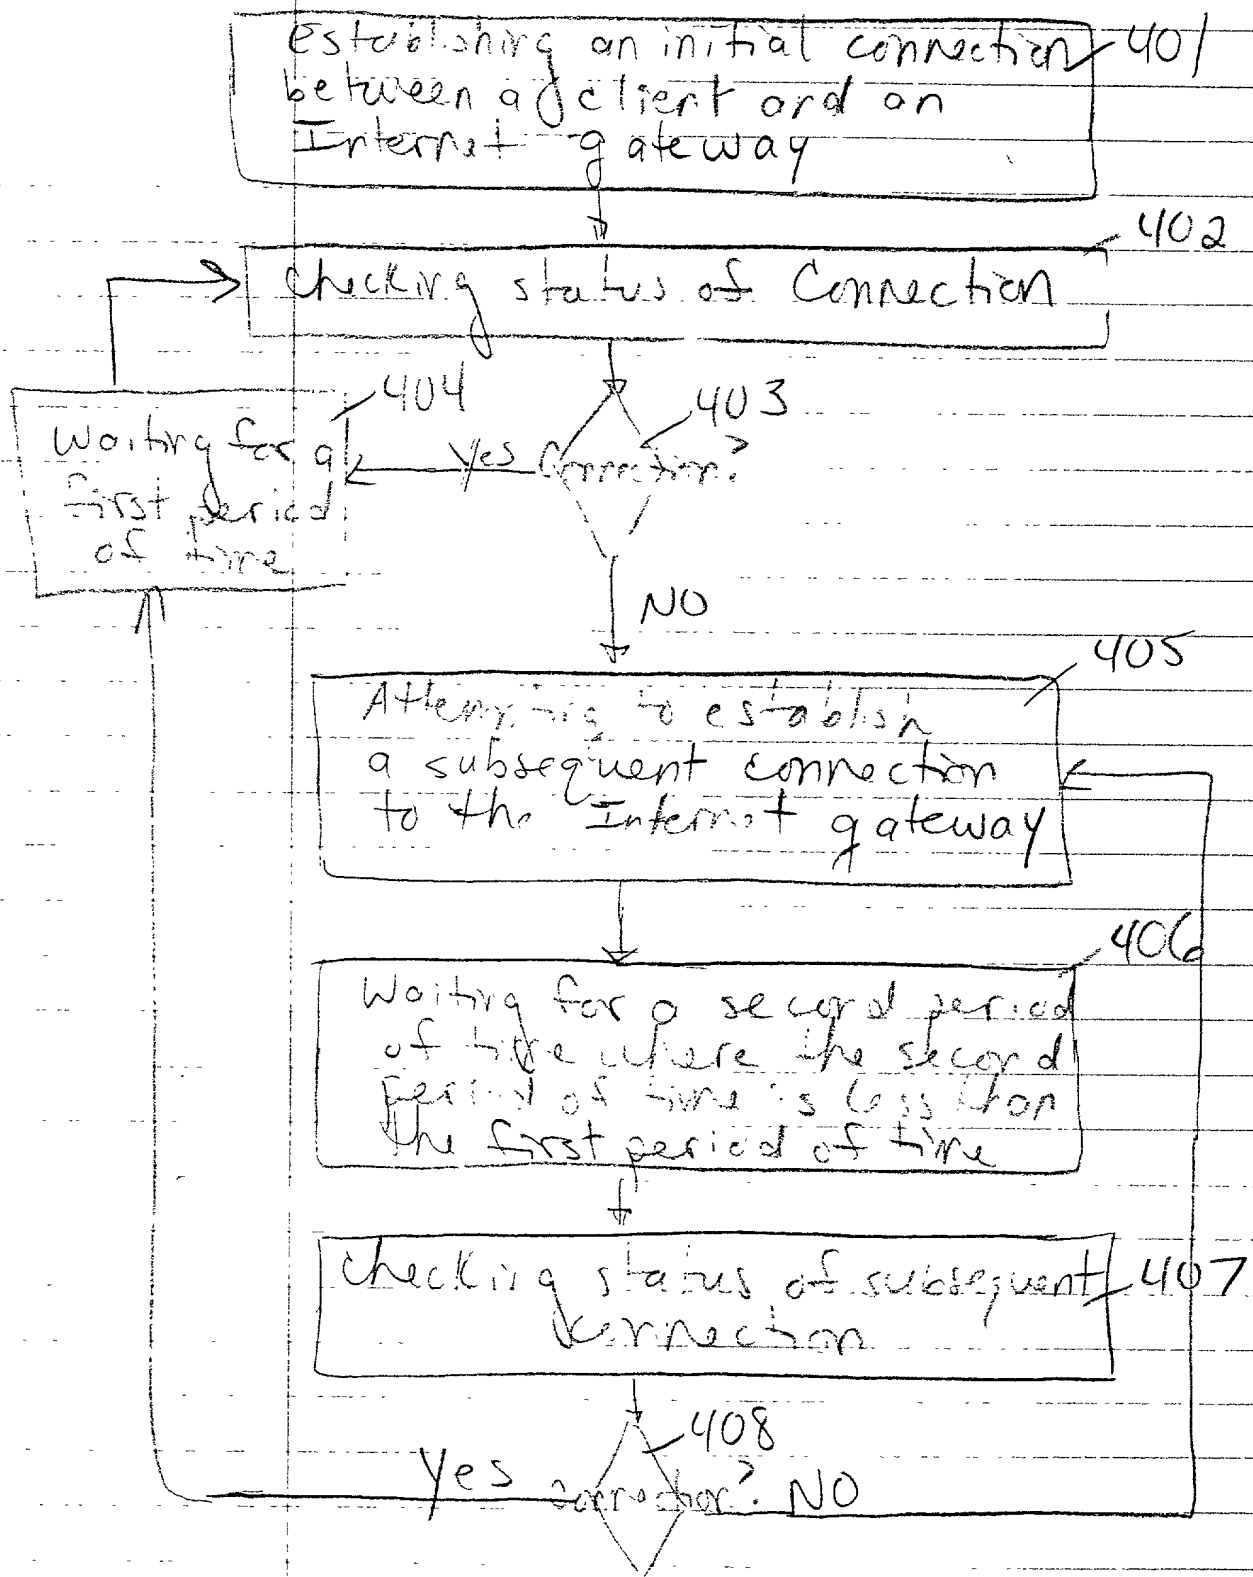 Establishing an initial connection 401
between a client and an
Internet gateway
402
Checking status of Connection
404
403
Waiting for a
first period
of time
Yes
Connection?
NO
405
Attempting to establish
a subsequent connection
to the Internet gateway
406
Waiting for a second period
of time where the second
period of time is less than
the first period of time
Checking status of subsequent 407
connection
408
Yes connection? NO